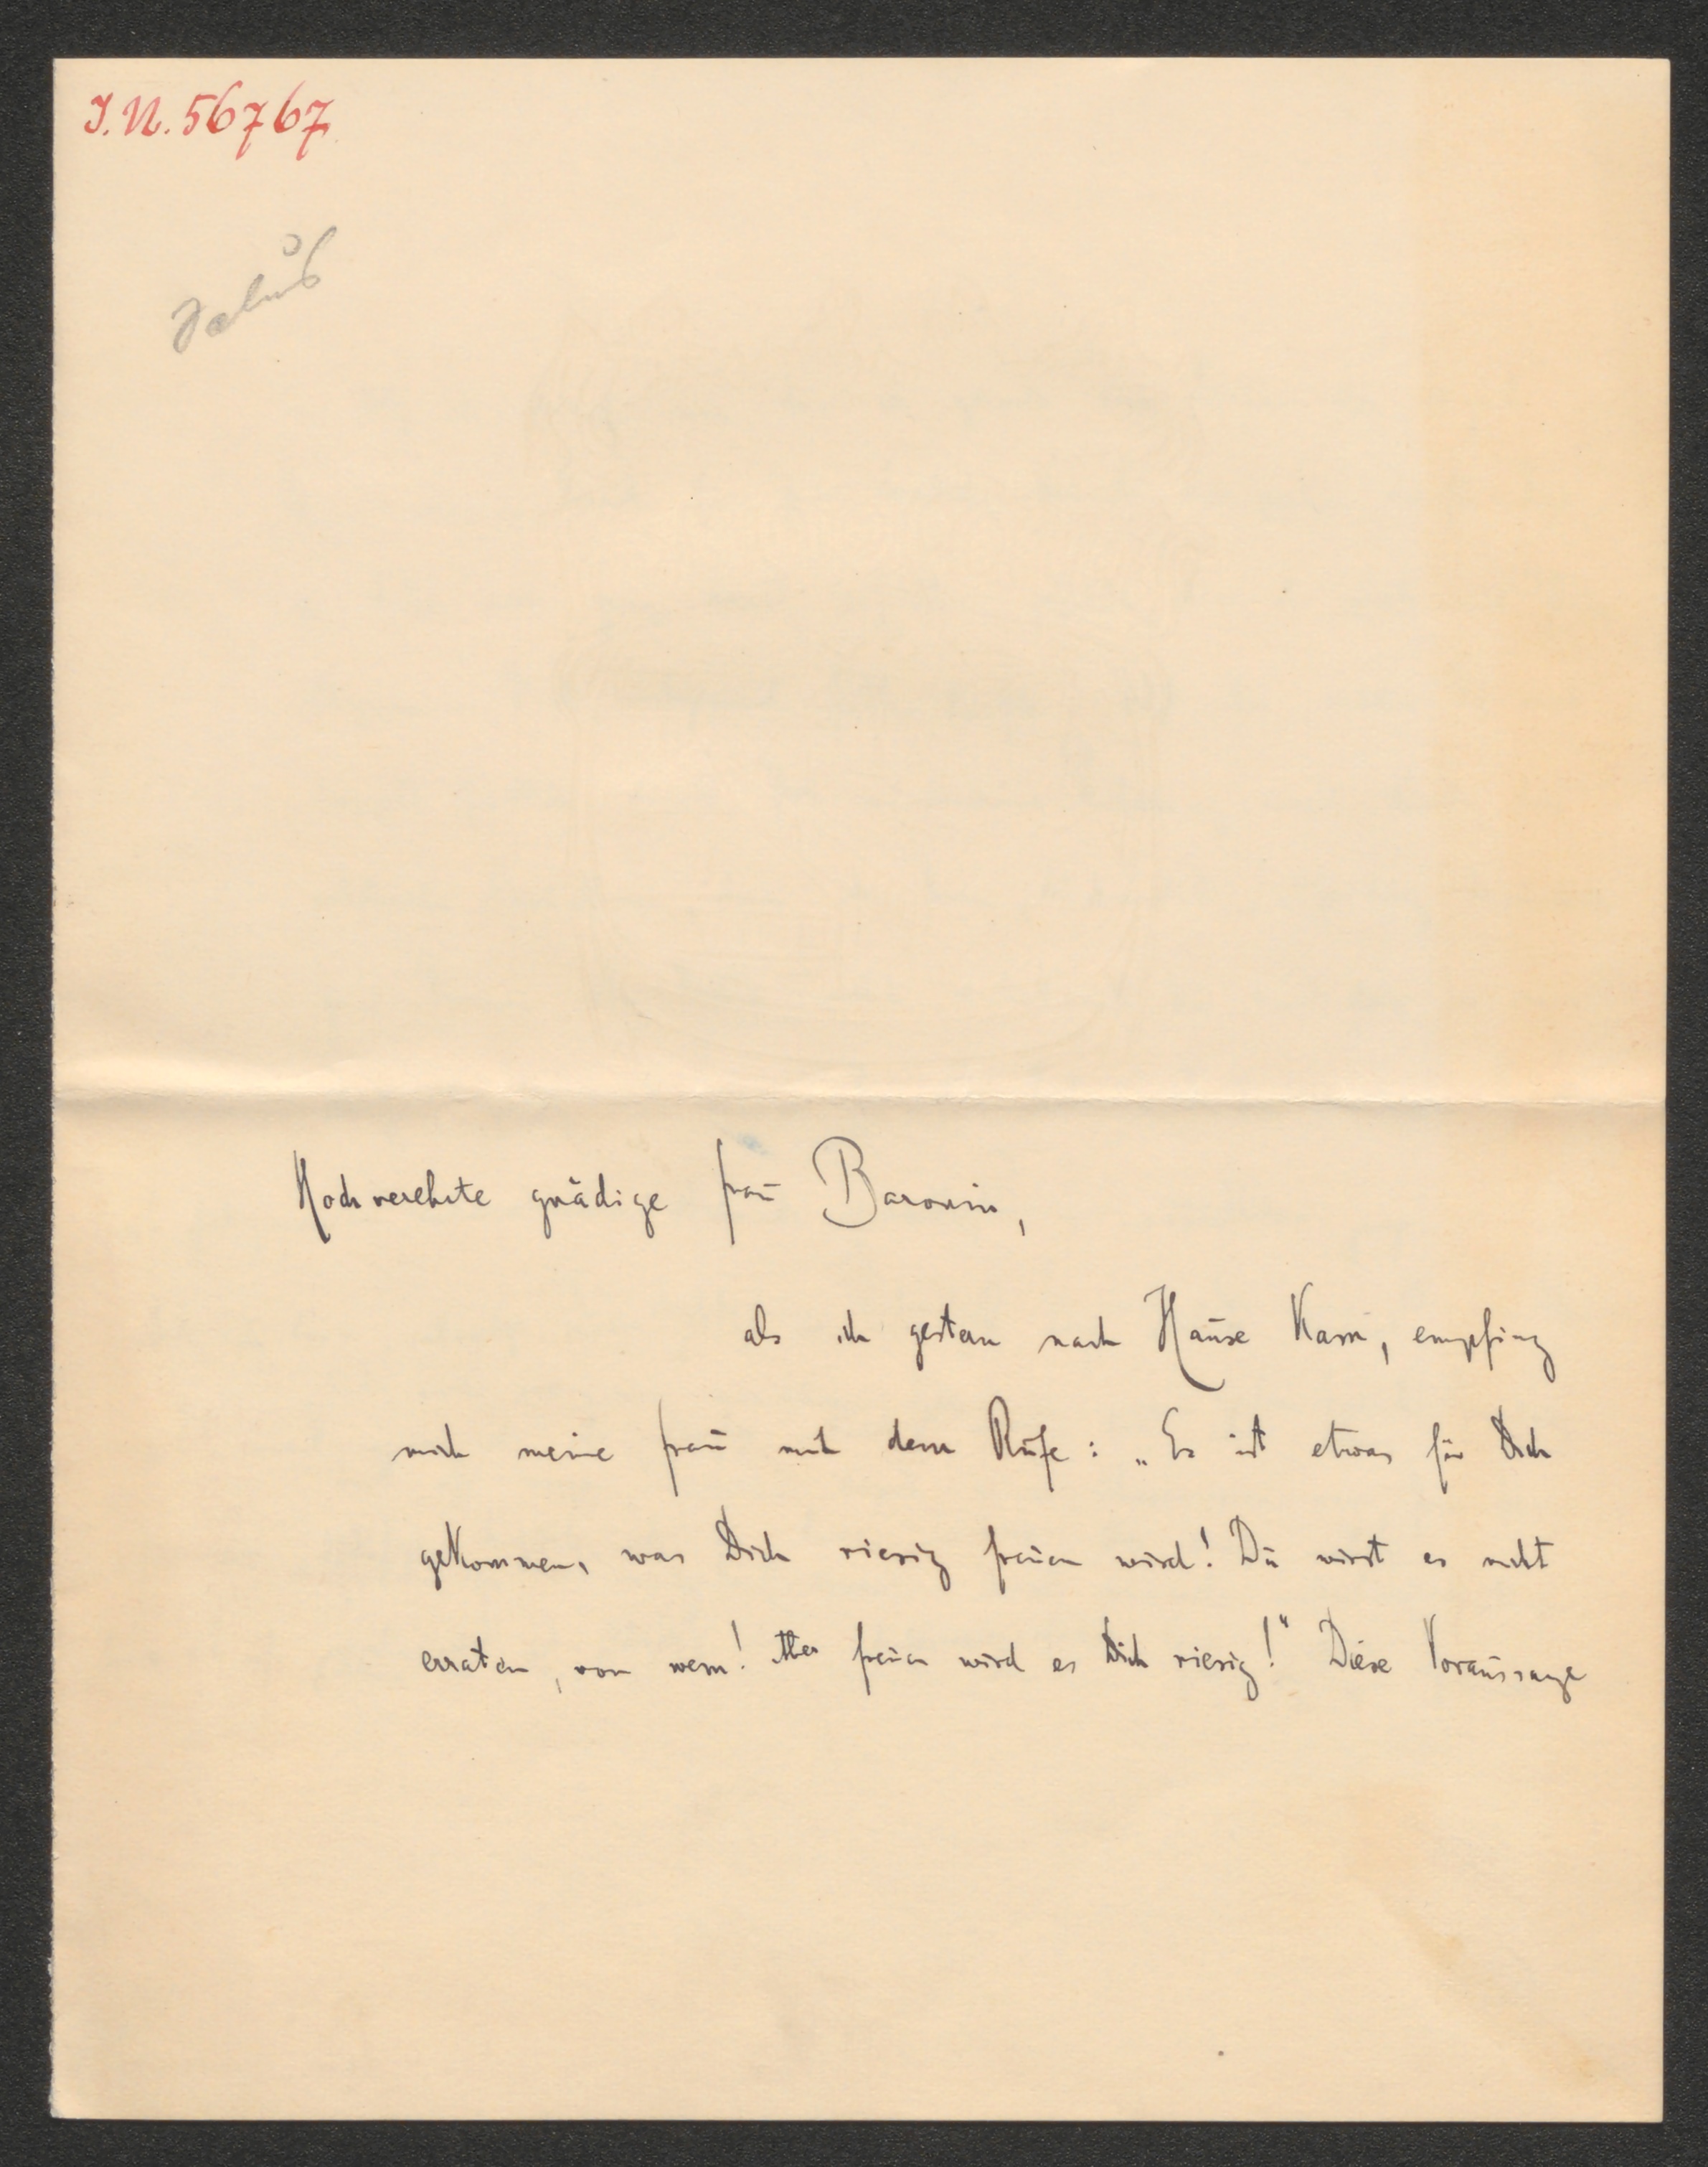 I.N. 56767
Salus
Hochverehrte gnädige Frau Baronin,
als ich gestern nach Hause kam, empfing
mich meine Frau mit dem Rufe: „Es ist etwas für Dich
gekommen, was Dich riesig freuen wird! Du wirst es nicht
erraten, von wem! Aber freuen wird es Dich riesig!" Diese Voraussage